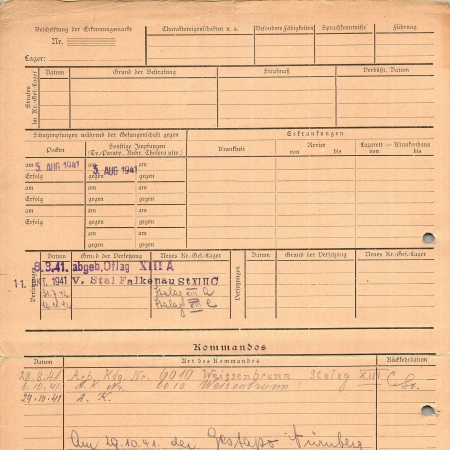 Beschriftung der Erkennungsmarke
Nr.
Lager:
Charaktereigenschaften u. a.
Besondere Fähigkeiten
Sprachkenntnisse
Führung
Strafen im Kr.-Gef.-Lager
Datum
Grund der Bestrafung
Strafmaß
Verbüßt, Datum
Schutzimpfungen während der Gefangenschaft gegen
Erkrankungen
Pocken
Sonstige Impfungen
(Ty.-Paraty., Ruhr, Cholera usw.)
Krankheit
Revier
von bis
Lazarett — Krankenhaus
von bis
am 5. AUG 1941
Erfolg
am
Erfolg
am
Erfolg
am
Erfolg
am 5. AUG 1941
gegen
am
gegen
am
gegen
am
gegen
am
gegen
am
gegen
am
gegen
am
gegen
Versetzungen
Datum
Grund der Versetzung
Neues Kr.-Gef.-Lager
Versetzungen
Datum
Grund der Versetzung
Neues Kr.-Gef.-Lager
8.8.41. abgeb. Oflag XIII A
11. OKT. 1941 V. Stal Falkenau St XIII C
Stalag XIII A
Stalag XIII C
Kommandos
Datum
Art des Kommandos
Rückkehrdatum
28.8.41 Arb. Kdo. Nr. 6010 Weissenbrunn Stalag XIII C
6.10.41 A. K. No 6010 Weissenbrunn
29.10.41 A. K.
Am 29.10.41 der Gestapo Nürnberg